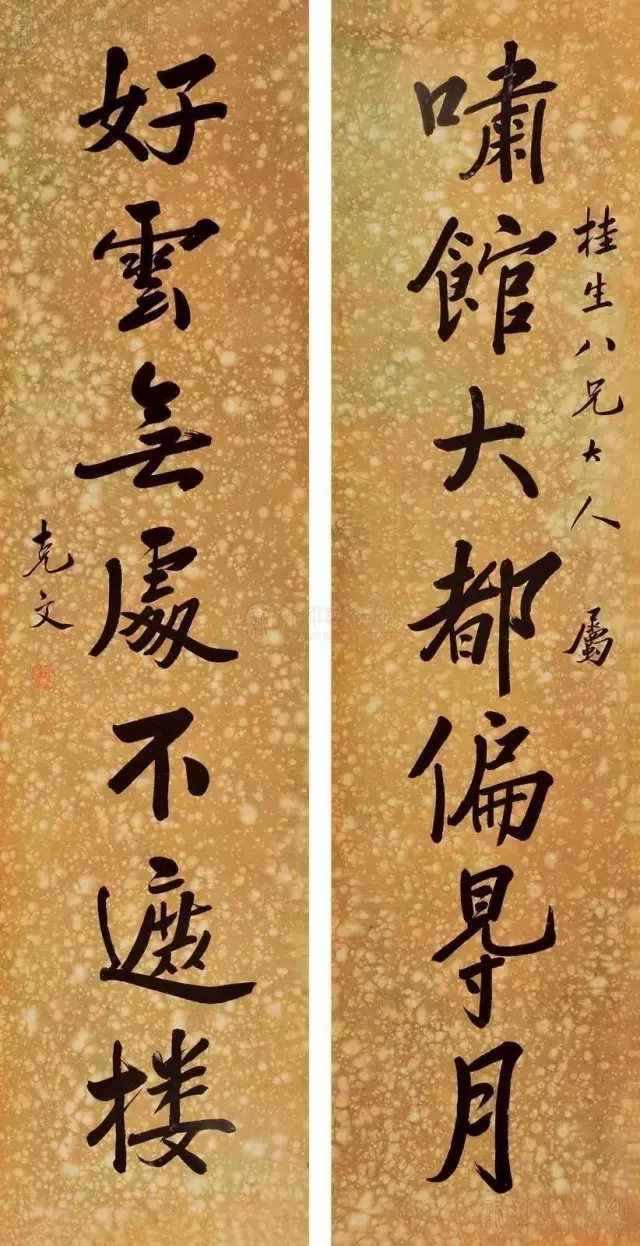 嘯館大都偏㝵月
桂生八兄大人 屬
好雲無處不遮楼
克文